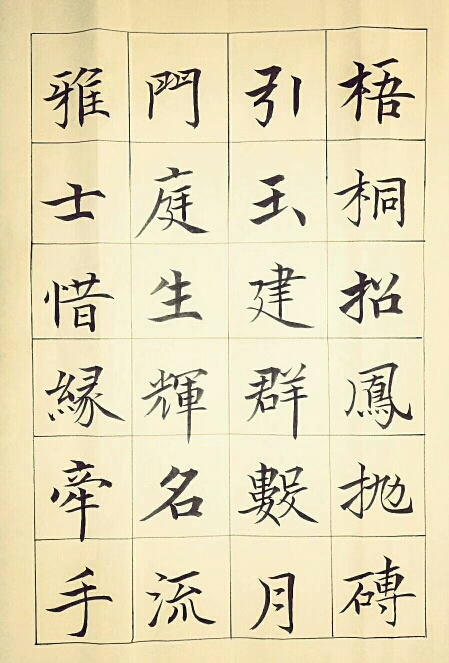 梧桐招鳳抛磚
引玉建群數月
門庭生輝名流
雅士惜緣牽手